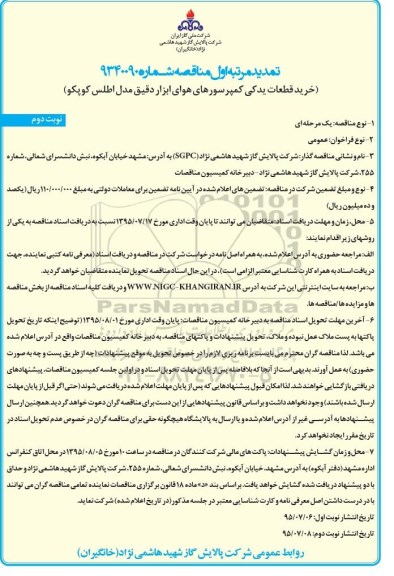 شرکت ملی گاز ایران
شرکت پالایش گاز شهید هاشمی نژاد (خانگیران)
تمدید مرتبه اول مناقصه شماره ۹۳۴۰۰۹۰
(خرید قطعات یدکی کمپرسورهای هوای ابزار دقیق مدل اطلس کوپکو)
نوبت دوم
۱-نوع مناقصه: یک مرحله ای
۲-نوع فراخوان: عمومی
۳-نام و نشانی مناقصه گذار: شرکت پالایش گاز شهید هاشمی نژاد (SGPC) به آدرس: مشهد خیابان آبکوه، نبش دانشسرای شمالی، شماره
۲۵۵، شرکت پالایش گاز شهید هاشمی نژاد- دبیرخانه کمیسیون مناقصات
۴- نوع و مبلغ تضمین شرکت در مناقصه: تضمین های اعلام شده در آیین نامه تضمین برای معاملات دولتی به مبلغ ۱۱۰/۰۰۰/۰۰۰ ریال (یکصد
و ده میلیون ریال)
۵- محل، زمان و مهلت دریافت اسناد: متقاضیان می توانند تا پایان وقت اداری مورخ ۱۳۹۵/۰۷/۱۷ نسبت به دریافت اسناد مناقصه به یکی از
روشهای زیر اقدام نمایند:
الف: مراجعه حضوری به آدرس اعلام شده، به همراه اصل نامه درخواست شرکت در مناقصه و دریافت اسناد (معرفی نامه کتبی نماینده، جهت
دریافت اسناد به همراه کارت شناسایی معتبر الزامی است)، در این حال اسناد مناقصه تحویل نماینده متقاضیان خواهد گردید.
ب: مراجعه به سایت اینترنتی این شرکت به آدرس WWW.NIGC-KHANGIRAN.IR و دریافت کلیه اسناد مناقصه از بخش مناقصه
ها و مزایده ها/مناقصه ها.
۶- آخرین مهلت تحویل اسناد مناقصه به دبیرخانه کمیسیون مناقصات: پایان وقت اداری مورخ ۱۳۹۵/۰۸/۰۱ (توضیح اینکه تاریخ تحویل
پاکتها به پست ملاک عمل نبوده و ملاک، تحویل پیشنهادات و پاکتهای مناقصه، به دبیرخانه کمیسیون مناقصات واقع در آدرس اعلام شده
می باشد. لذا مناقصه گران محترم می بایست برنامه ریزی لازم را در خصوص تحویل به موقع پیشنهادات (چه از طریق پست و چه به صورت
حضوری) به عمل آورند. بدیهی است از آنجا که بلافاصله پس از پایان مهلت تحویل اسناد و در اولین جلسه کمیسیون مناقصات، پیشنهادهای
دریافتی بازگشایی خواهند شد، لذا امکان قبول پیشنهادهایی که پس از پایان مهلت اعلام شده دریافت می شوند (حتی اگر قبل از پایان مهلت
ارسال شده باشند) وجود نخواهد داشت و بر اساس قانون پیشنهادهایی از این دست برای مناقصه گران دعوت خواهد گردید. همچنین ارسال
پیشنهادها به آدرسی غیر از آدرس اعلام شده و یا ارسال به پالایشگاه هیچگونه حقی برای مناقصه گران در خصوص عدم تحویل اسناد در
تاریخ مقرر ایجاد نخواهد کرد.
۷- محل و زمان گشایش پیشنهادات: پاکت های مالی شرکت کنندگان در مناقصه در ساعت ۱۰ مورخ ۱۳۹۵/۰۸/۰۵ در محل اتاق کنفرانس
اداره مشهد (دفتر آبکوه) به آدرس مشهد، خیابان آبکوه، نبش دانشسرای شمالی، شماره ۲۵۵، شرکت پالایش گاز شهید هاشمی نژاد و حداق
با دو پیشنهاد دریافت شده گشایش خواهد یافت. بر اساس بند «د» ماده ۱۸ قانون برگزاری مناقصات نماینده تمامی مناقصه گران می توانند
با در دست داشتن اصل معرفی نامه و کارت شناسایی معتبر در جلسه مذکور (در تاریخ اعلام شده) شرکت نماید.
تاریخ انتشار نوبت اول: ۹۵/۰۷/۰۶
تاریخ انتشار نوبت دوم: ۹۵/۰۷/۰۸
روابط عمومی شرکت پالایش گاز شهید هاشمی نژاد (خانگیران)
ParsNamadData